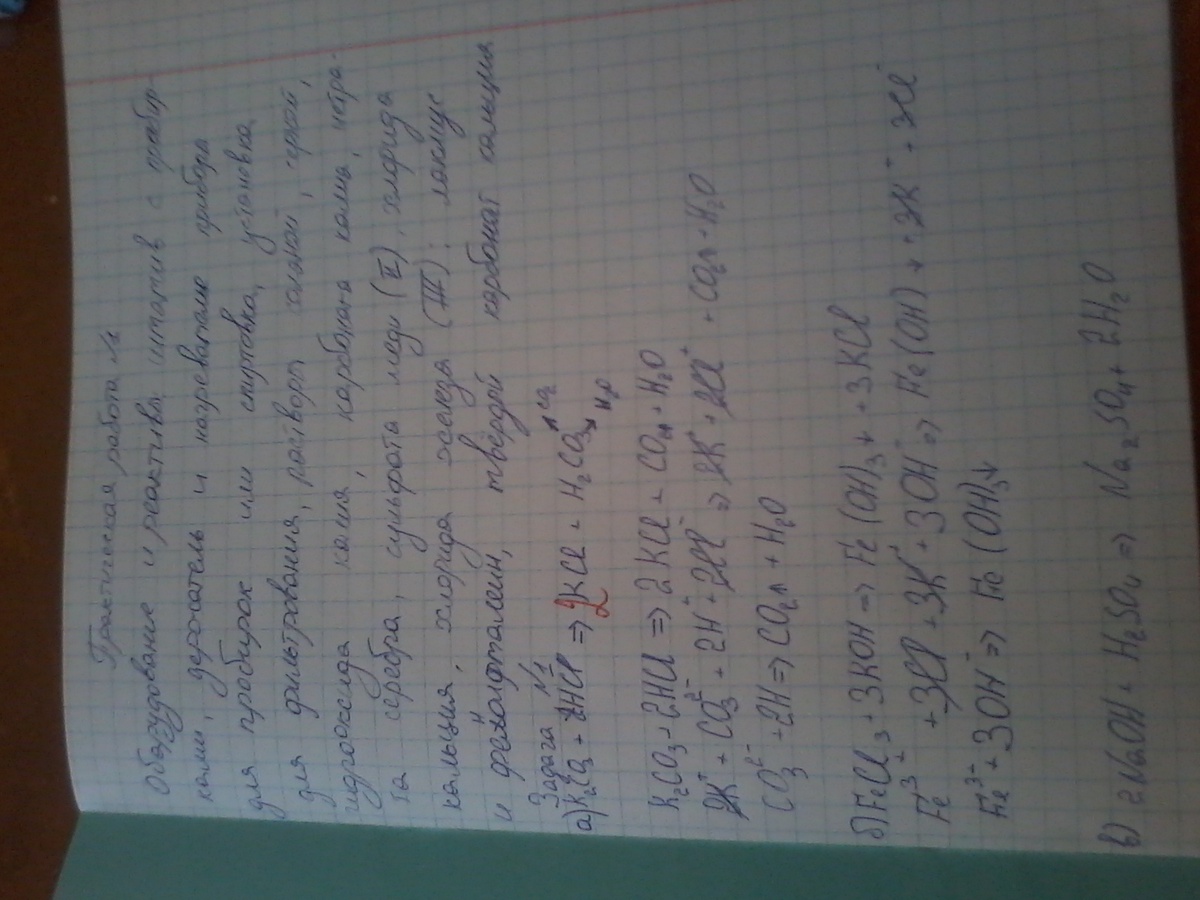 Практическая работа №
Оборудование и реактивы: штатив с пробир-
ками, держатель и нагреватель прибора
для пробирок или спиртовка, установка
для фильтрования, раствор соляной, серной,
гидроксида калия, карбоната калия, нитра-
та серебра, сульфата меди (II), хлорида
кальция, хлорида железа (III): лакмус
и фенолфталеин, твёрдый карбонат кальция
Задача №1
а) K₂CO₃ + 2HCl => 2KCl + H₂CO₃ ↗CO₂ ↘H₂O
K₂CO₃ + 2HCl => 2KCl + CO₂↑ + H₂O
2K⁺ + CO₃²⁻ + 2H⁺ + 2Cl⁻ => 2K⁺ + 2Cl⁺ + CO₂↑ + H₂O
CO₃²⁻ + 2H => CO₂↑ + H₂O
б) FeCl₃ + 3KOH => Fe(OH)₃↓ + 3KCl
Fe³⁺ + 3Cl⁻ + 3K⁺ + 3OH⁻ => Fe(OH)↓ + 3K⁻ + 3Cl⁻
Fe³⁻ + 3OH⁻ => Fe(OH)₃↓
в) 2NaOH + H₂SO₄ => Na₂SO₄ + 2H₂O